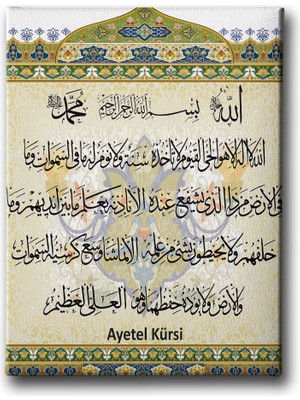 الله بسم الله الرحمن الرحيم محمد
الله لا اله الا هو الحي القيوم لا تأخذه سنة ولا نوم له ما في السموات وما
في الارض من ذا الذي يشفع عنده الا باذنه يعلم ما بين ايديهم وما
خلفهم ولا يحيطون بشيء من علمه الا بما شاء وسع كرسيه السموات
والارض ولا يؤده حفظهما وهو العلي العظيم
Ayetel Kürsi